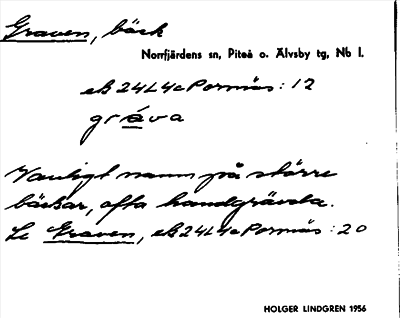 Graven, bäck
Norrfjärdens sn, Piteå o. Älvsby tg, Nb l.
eB 24L4c Pornäs: 12
gráva
Vanligt namn på större
bäckar, ofta handgrävda.
Se Graven, eB 24L4c Pornäs: 20
HOLGER LINDGREN 1956